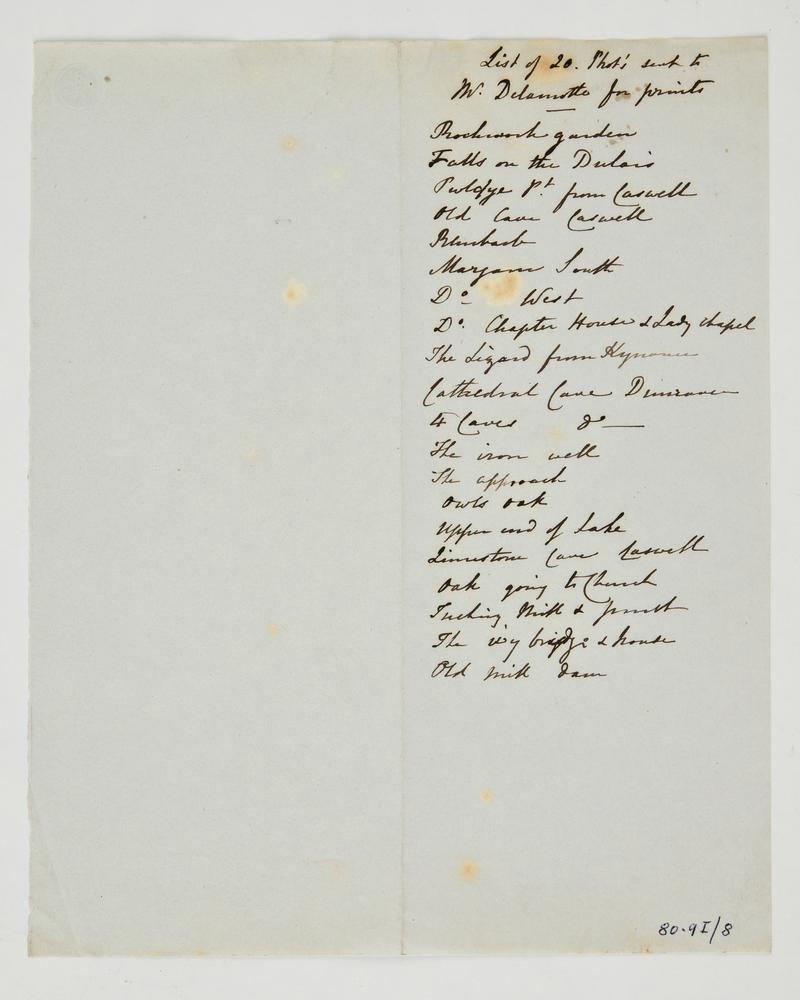 List of 20. Phot's sent to
Mr. Delamotte for prints
Rockwork garden
Falls on the Dulais
Pwldye Pt. from Caswell
Old Cave Caswell
Margam South
Do West
Do. Chapter House & Lady chapel
The Lizard from Kynance
Cathedral Cave Dunraven
4 Caves do
The iron well
The approach
Owls oak
Upper end of Lake
Limestone Cave Caswell
Oak going to Church
Tucking Mill &
The ivy bridge & house
Old mill dam
80.9I/8